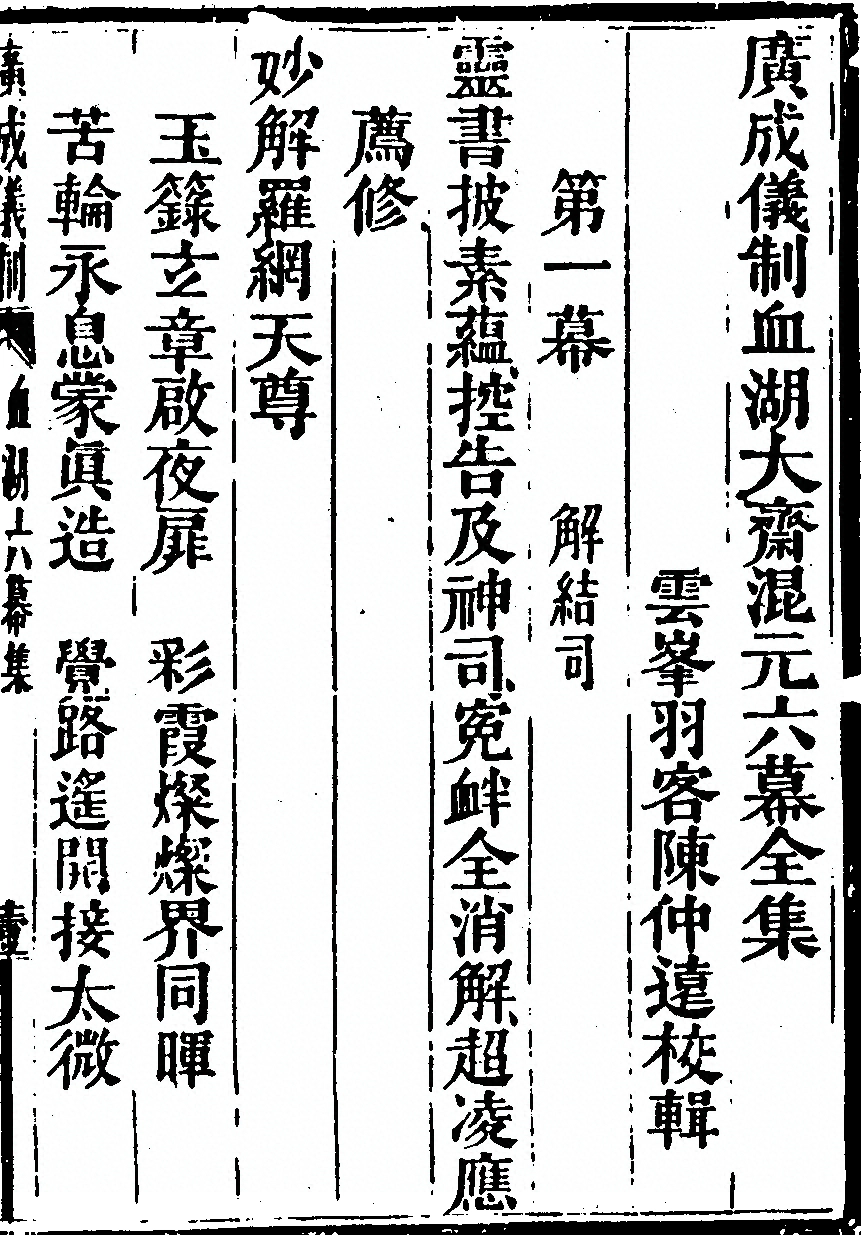 廣成儀制血湖大齋混元六幕全集
雲峯羽客陳仲遠校輯
第一幕　解結司
靈書披素蘊控告及神司寃衅全消解超凌應
薦修
妙解羅網天尊
玉籙立章啟夜扉　彩霞燦燦界同暉
苦輪永息蒙眞造　覺路遙開接太微
廣成儀制　血湖上八幕集　壹